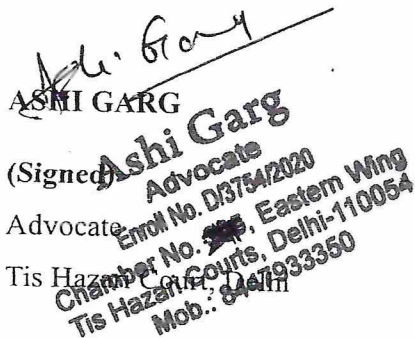 Ashi Garg
ASHI GARG
(Signed)
Advocate
Tis Hazari Court, Delhi
Ashi Garg
Advocate
Enroll No. D/3754/2020
Chamber No. , Eastern Wing
Tis Hazari Courts, Delhi-110054
Mob.: